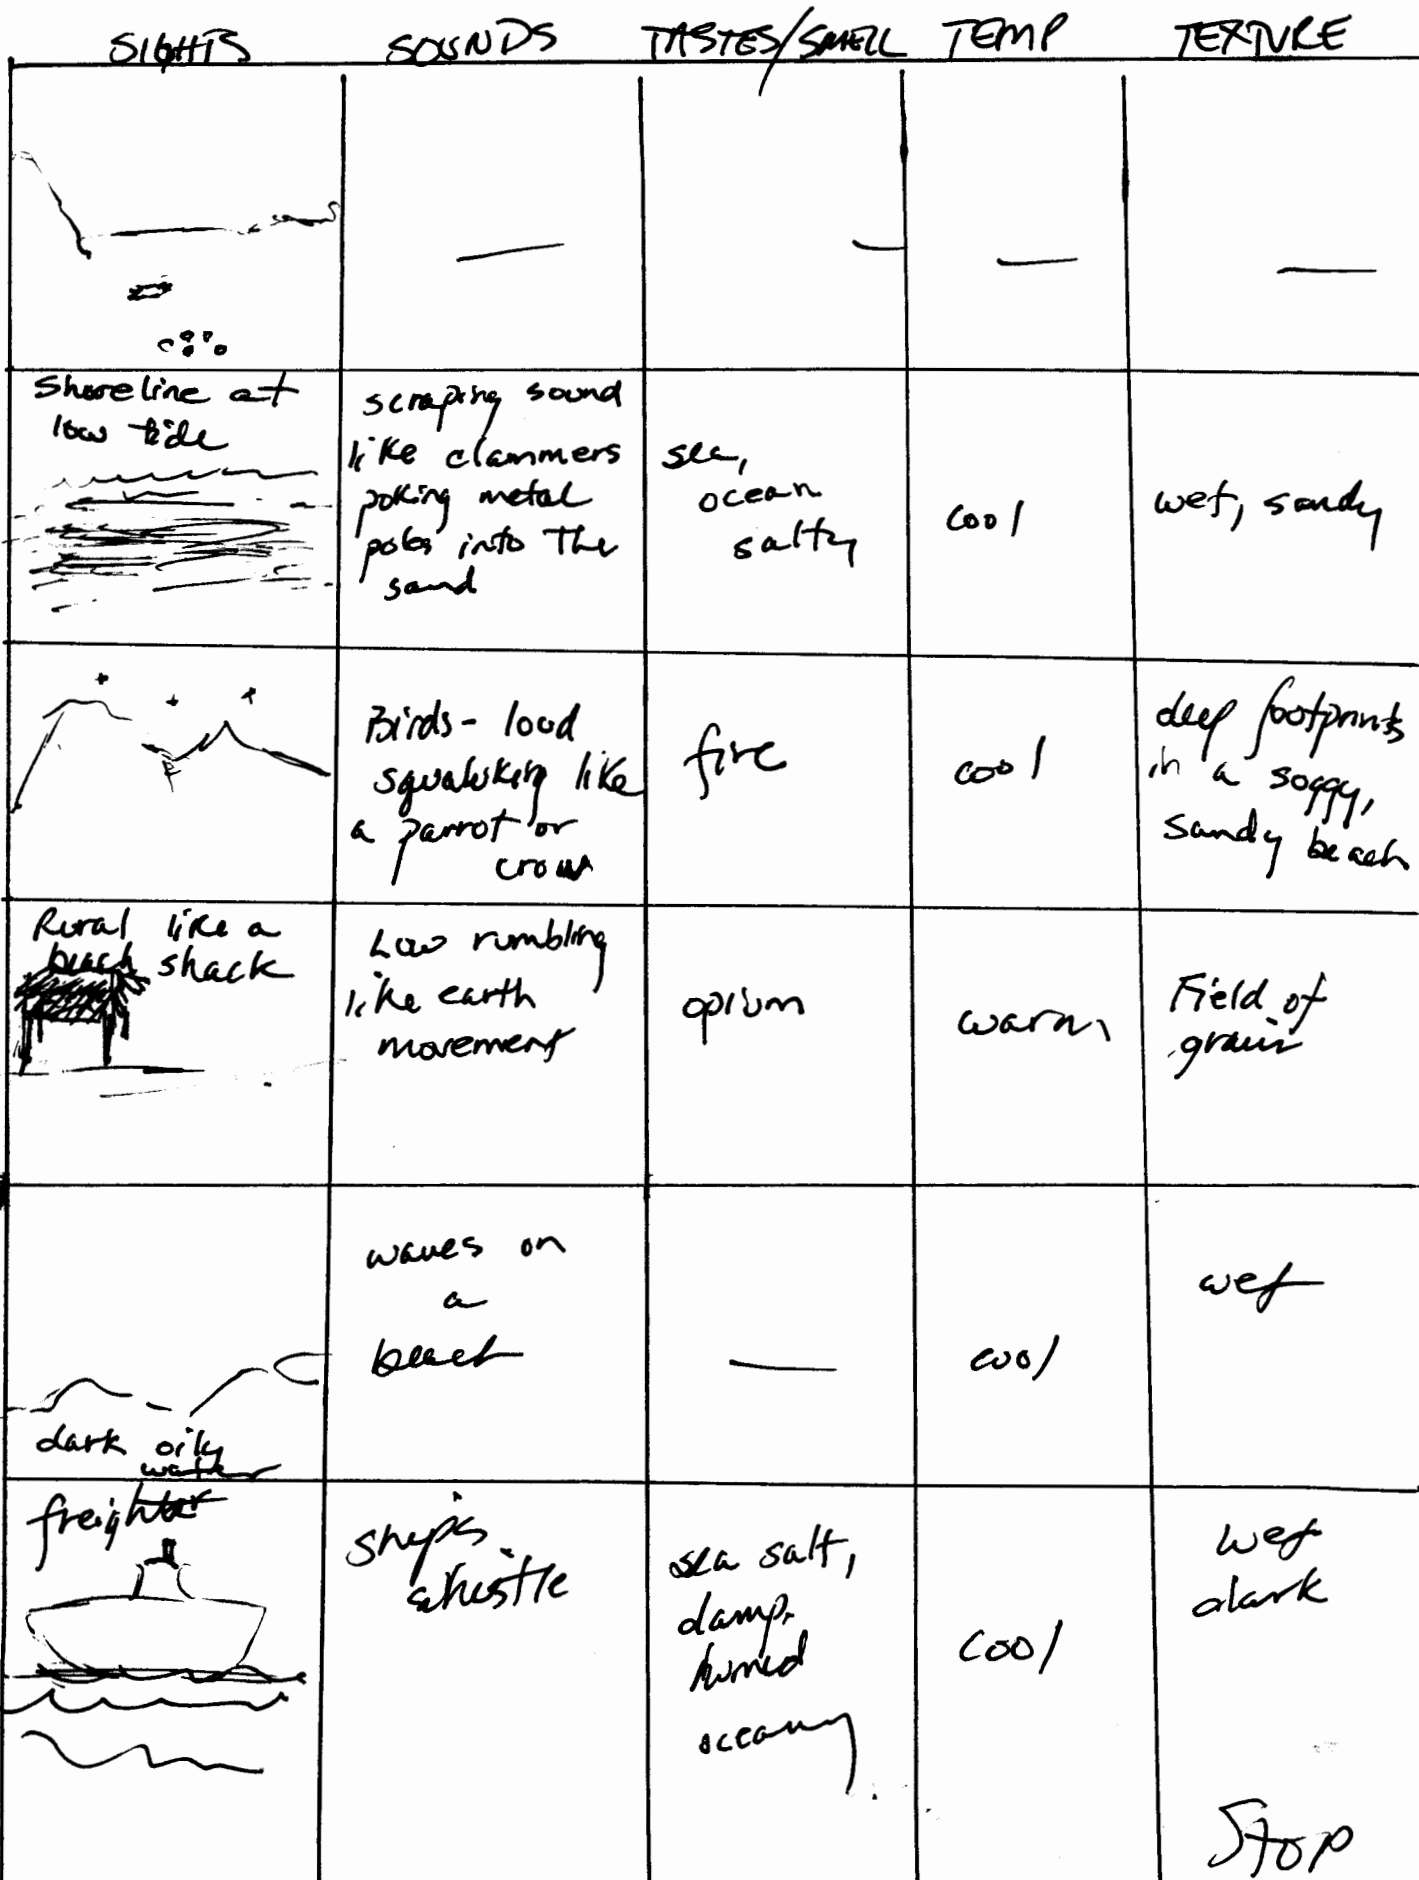 SIGHTS SOUNDS TASTES/SMELL TEMP TEXTURE
Shoreline at
low tide
scraping sound
like clammers
poking metal
poles into the
sand
sea,
ocean
salty
cool
wet, sandy
Birds - loud
squawking like
a parrot or
crow
fire
cool
deep footprints
in a soggy,
sandy beach
Rural like a
beach shack
Low rumbling
like earth
movement
opium
warm
Field of
grain
dark oily
water
waves on
a
beach
cool
wet
freighter
ship's
whistle
sea salt,
damp,
humid
oceany
cool
wet
dark
Stop